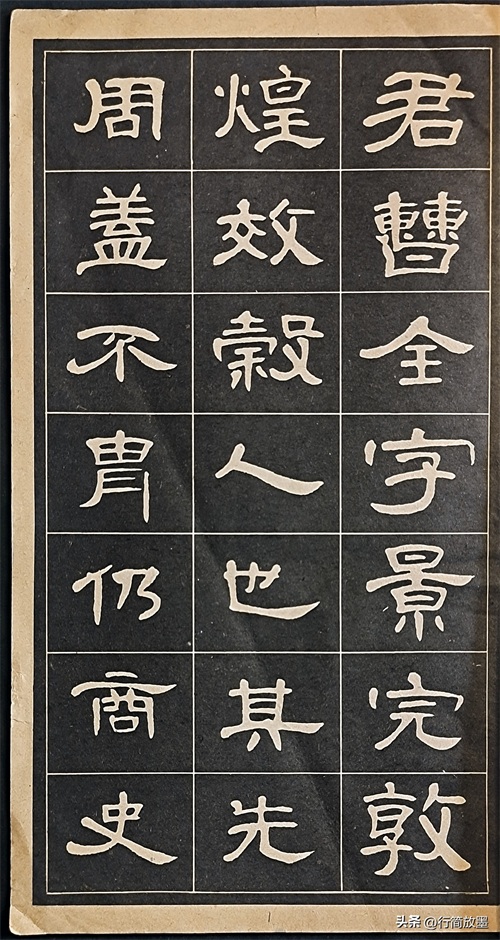 君曹全字景完敦
煌效穀人也其先
周盖不胄仍商史
头条 @行简放墨